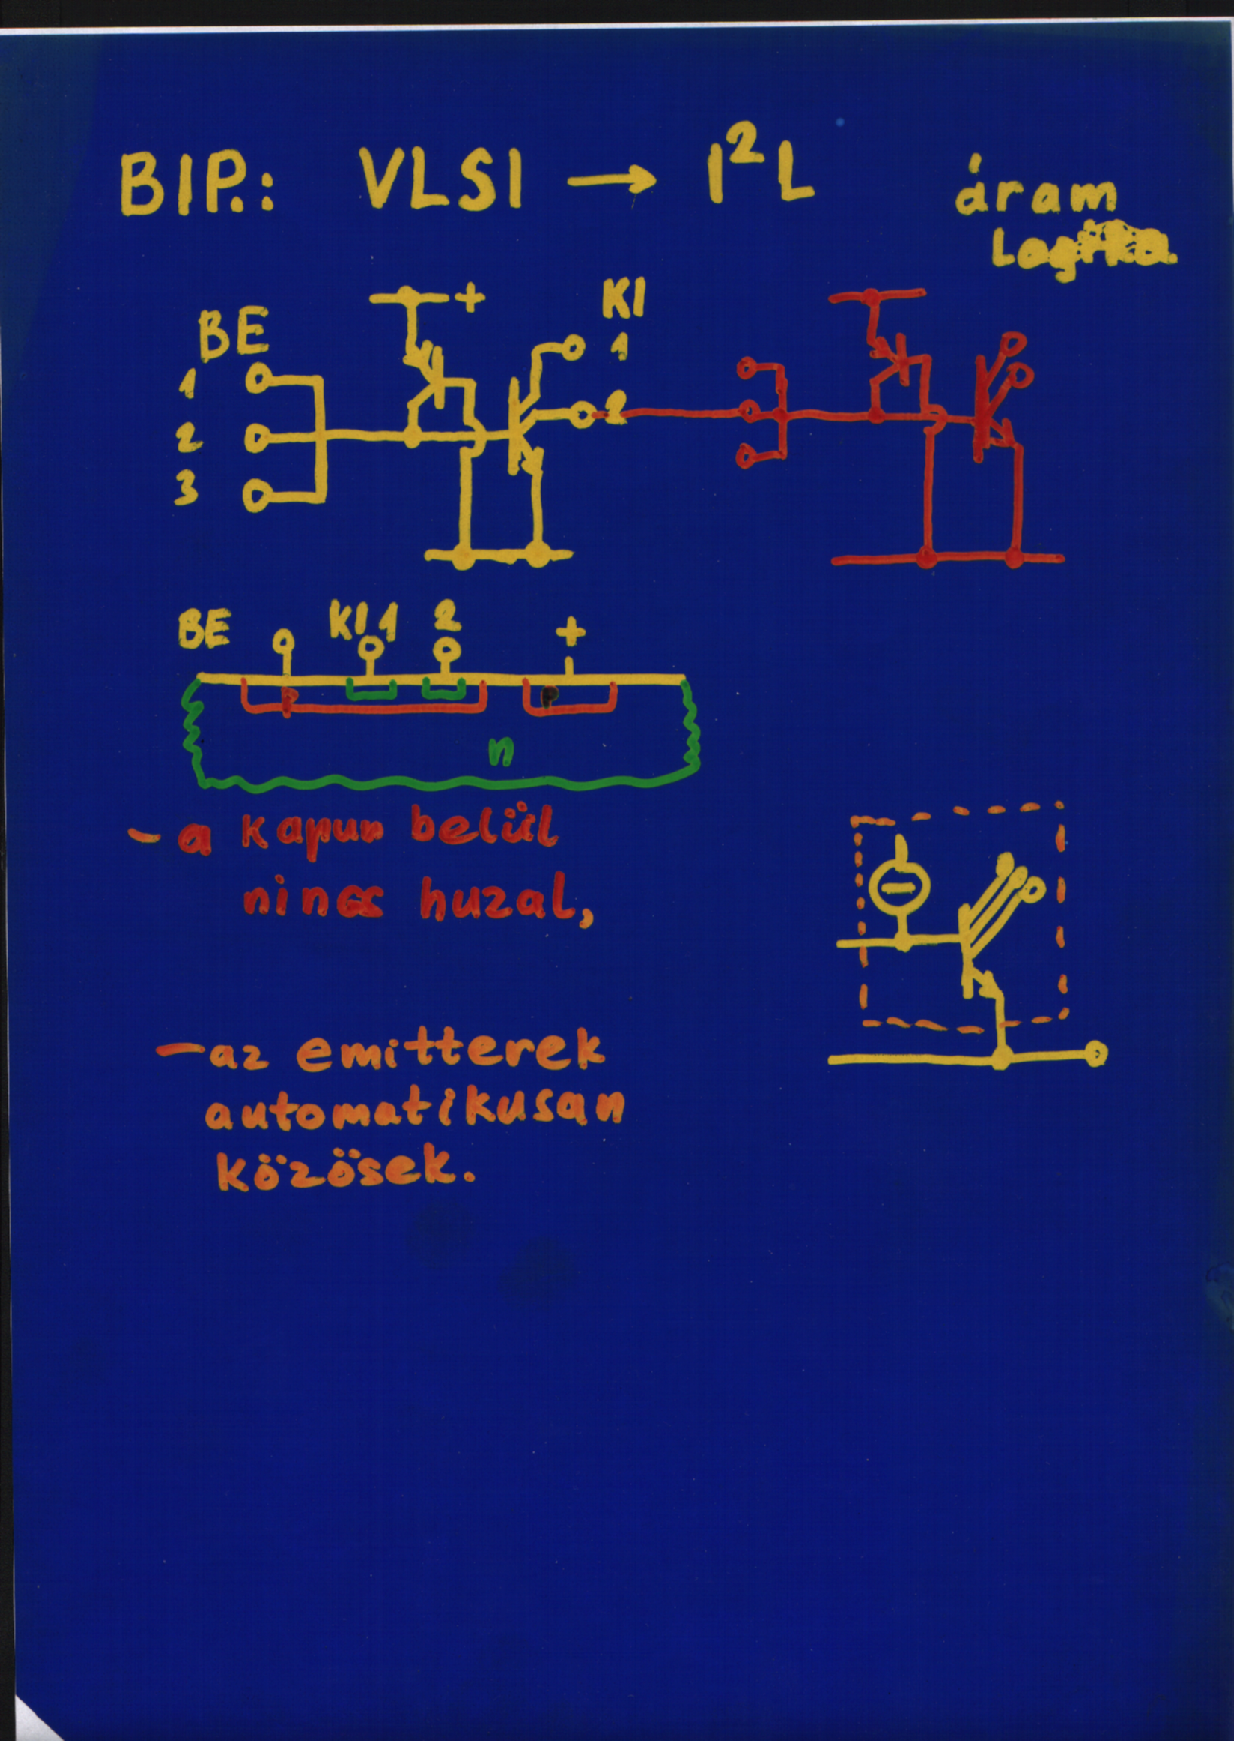 BIP.: VLSI → I²L áram
Logika
BE
KI
+
1
1
2
2
3
BE KI 1 2 +
P P
n
- a kapun belül
nincs huzal,
- az emitterek
automatikusan
közösek.